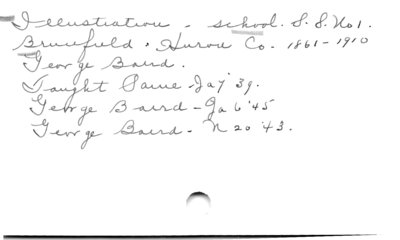 Illustration - school. S. S. No 1.
Brucefield, Huron Co. 1861-1910
George Baird.
Taught Same - Ja 7 39.
George Baird - Ja 6 '45
George Baird - N 20 '43.